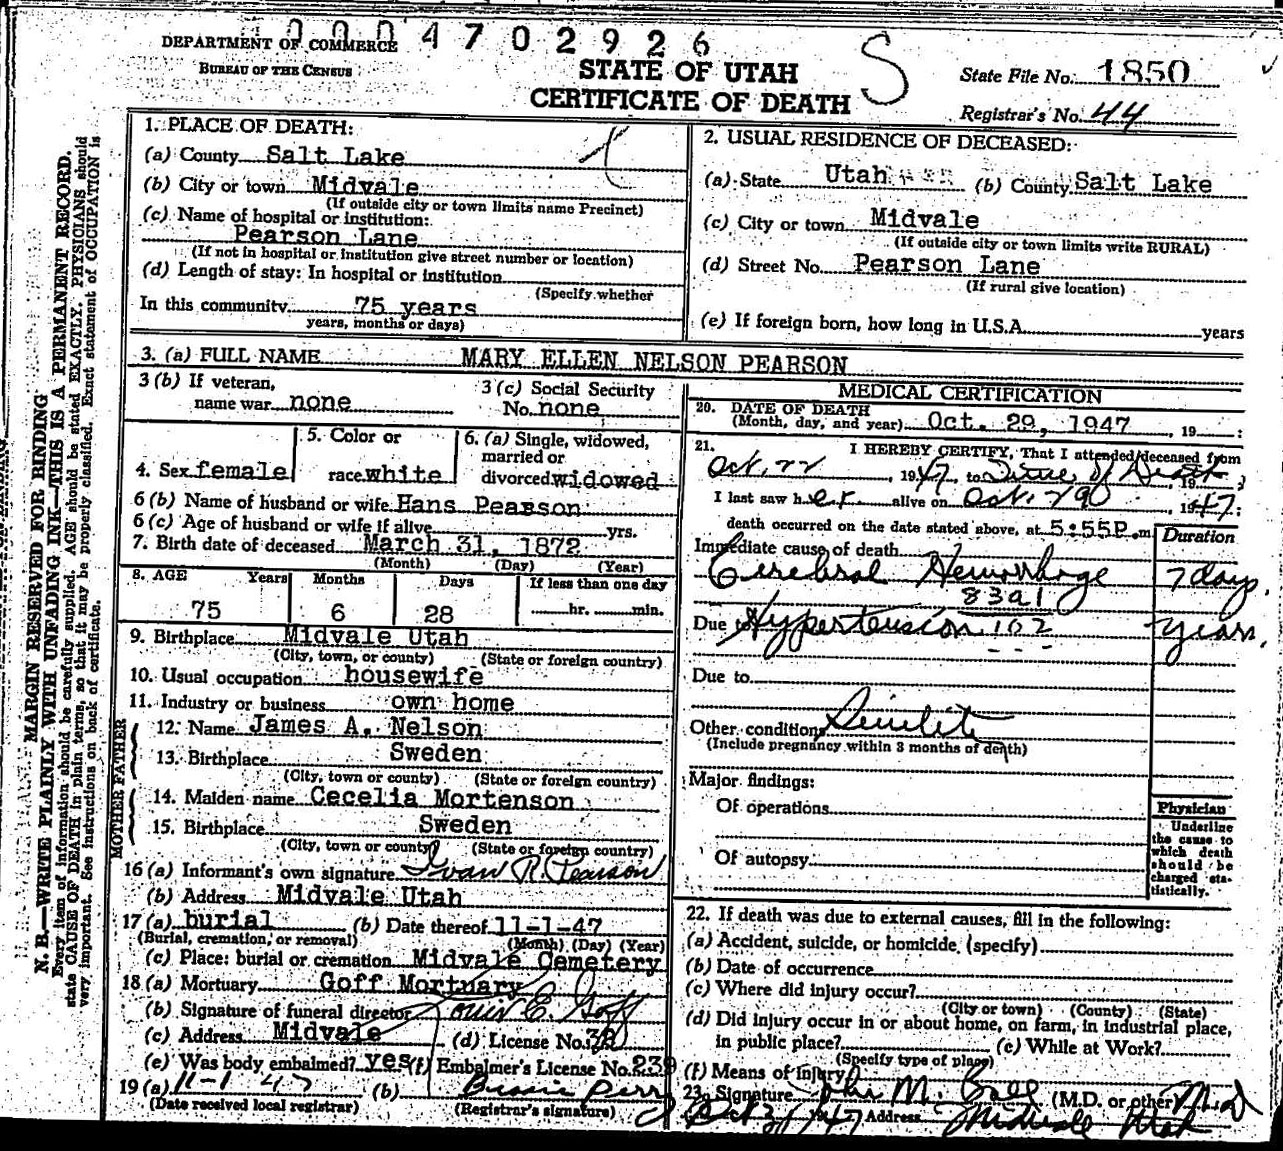 0004702926
DEPARTMENT OF COMMERCE
BUREAU OF THE CENSUS
STATE OF UTAH
CERTIFICATE OF DEATH
S
State File No. 1850
Registrar's No. 44
MARGIN RESERVED FOR BINDING
N. B.—WRITE PLAINLY WITH UNFADING INK—THIS IS A PERMANENT RECORD.
Every item of information should be carefully supplied. AGE should be stated EXACTLY. PHYSICIANS should
state CAUSE OF DEATH in plain terms, so that it may be properly classified. Exact statement of OCCUPATION is
very important. See instructions on back of certificate.
1. PLACE OF DEATH:
(a) County Salt Lake
(b) City or town Midvale
(If outside city or town limits name Precinct)
(c) Name of hospital or institution:
Pearson Lane
(If not in hospital or institution give street number or location)
(d) Length of stay: In hospital or institution
(Specify whether
In this community 75 years
years, months or days)
2. USUAL RESIDENCE OF DECEASED:
(a) State Utah (b) County Salt Lake
(c) City or town Midvale
(If outside city or town limits write RURAL)
(d) Street No. Pearson Lane
(If rural give location)
(e) If foreign born, how long in U.S.A. years
3. (a) FULL NAME MARY ELLEN NELSON PEARSON
3 (b) If veteran,
name war none
3 (c) Social Security
No. none
4. Sex female
5. Color or
race white
6. (a) Single, widowed,
married or
divorced widowed
6 (b) Name of husband or wife Hans Pearson
6 (c) Age of husband or wife if alive yrs.
7. Birth date of deceased March 31, 1872
(Month) (Day) (Year)
8. AGE Years Months Days If less than one day
75 6 28 hr. min.
9. Birthplace Midvale Utah
(City, town, or county) (State or foreign country)
10. Usual occupation housewife
11. Industry or business own home
FATHER
12. Name James A. Nelson
13. Birthplace Sweden
(City, town or county) (State or foreign country)
MOTHER
14. Maiden name Cecelia Mortenson
15. Birthplace Sweden
(City, town or county) (State or foreign country)
16 (a) Informant's own signature Ivan R. Pearson
(b) Address Midvale Utah
17 (a) burial (b) Date thereof 11-1-47
(Burial, cremation, or removal) (Month) (Day) (Year)
(c) Place: burial or cremation Midvale Cemetery
18 (a) Mortuary Goff Mortuary
(b) Signature of funeral director Louis E. Goff
(c) Address Midvale (d) License No.
(e) Was body embalmed? yes (f) Embalmer's License No. 239
19 (a) 11-1 47 (b)
(Date received local registrar) (Registrar's signature)
MEDICAL CERTIFICATION
20. DATE OF DEATH
(Month, day, and year) Oct. 29, 1947, 19 :
21. I HEREBY CERTIFY, That I attended deceased from
Oct. 22, 1947, to Time of Death, 19 ;
I last saw her alive on Oct. 29, 1947:
death occurred on the date stated above, at 5:55P.m. Duration
Immediate cause of death
Cerebral Hemorrhage 7 days.
83a1
Due to Hypertension 102 years.
Due to
Other conditions Senility
(Include pregnancy within 3 months of death)
Major findings:
Of operations
Of autopsy
Physician
Underline
the cause to
which death
should be
charged sta-
tistically.
22. If death was due to external causes, fill in the following:
(a) Accident, suicide, or homicide (specify)
(b) Date of occurrence
(c) Where did injury occur?
(City or town) (County) (State)
(d) Did injury occur in or about home, on farm, in industrial place,
in public place? (e) While at Work?
(Specify type of place)
(f) Means of Injury
23. Signature John M. (M.D. or other) M.D
Oct 31 1947 Address Midvale Utah